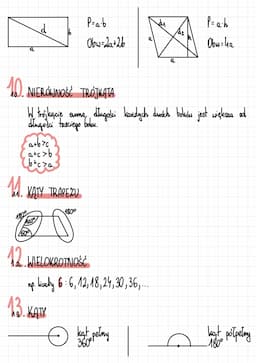 d
b
a
P=a·b
Obw=2a+2b
a
h
a
P=a·h
Obw=4a
10. NIERÓWNOŚĆ TRÓJKĄTA
W trójkącie suma długości każdych dwóch boków jest większa od
długości trzeciego boku.
a+b>c
a+c>b
b+c>a
11. KĄTY TRAPEZU
180°
180°
12. WIELOKROTNOŚĆ
np. liczby 6: 6, 12, 18, 24, 30, 36,...
13. KĄTY
kąt pełny
360°
kąt półpełny
180°